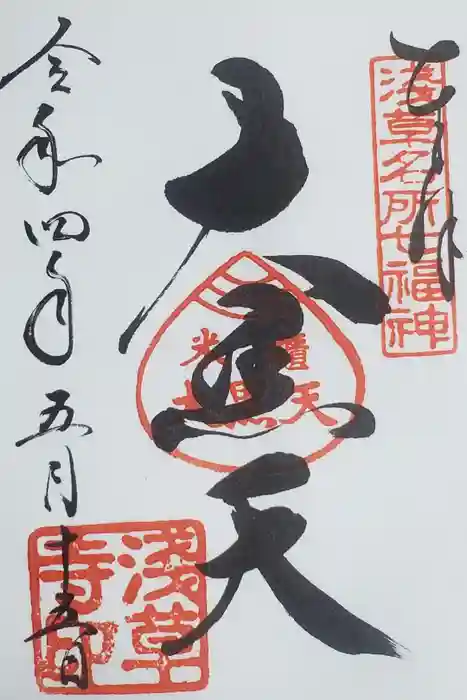 奉拝
浅草名所七福神
大黒天
米廩
大黒天
令和四年五月十五日
浅草
寺印